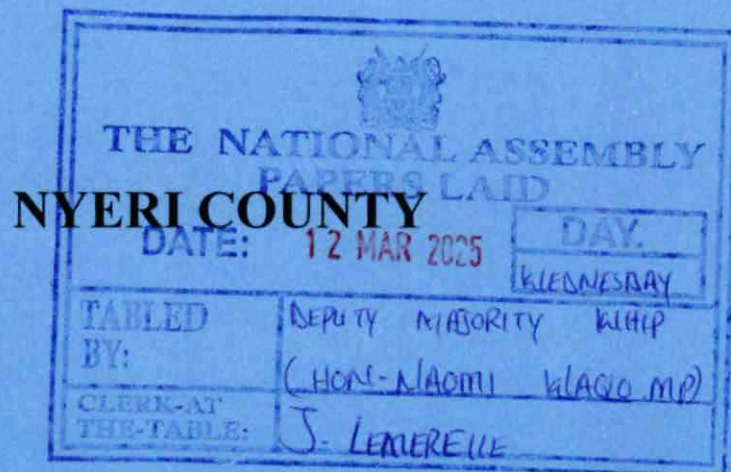 THE NATIONAL ASSEMBLY
PAPERS LAID
NYERI COUNTY
DATE: 12 MAR 2025 DAY.
WEDNESDAY
TABLED BY: DEPUTY MAJORITY WHIP
(HON. NAOMI WAQO MP)
CLERK-AT THE-TABLE: J. LEMERELLE